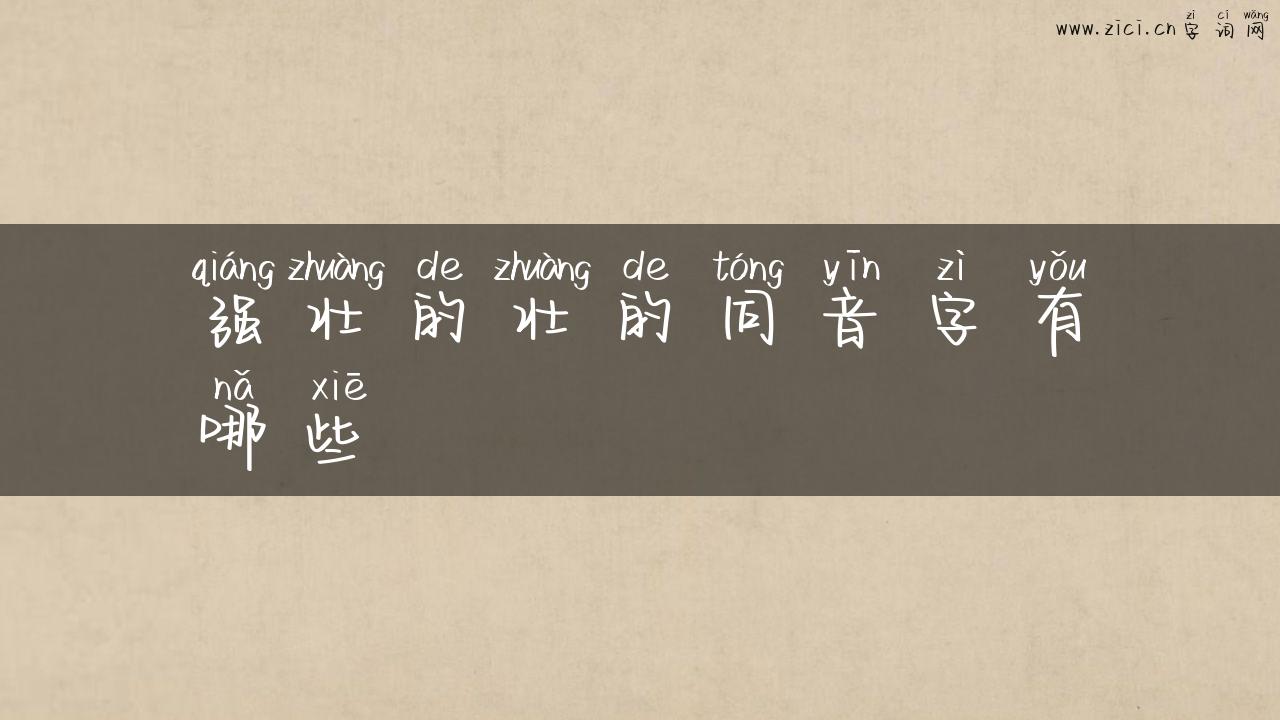 zì cí wǎng
www.zici.cn 字词网
qiáng zhuàng de zhuàng de tóng yīn zì yǒu
强壮的壮的同音字有
nǎ xiē
哪些